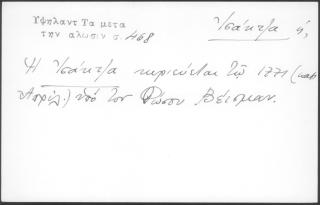 Ὑψηλαντ Τα μετα
την αλωσιν σ. 468
Ἰσάκτζα ἡ,
Ἡ Ἰσάκτζα κυριεύεται τῷ 1771 (κατ
Ἀπρίλ.) ὑπὸ τοῦ Ρώσου Βέισμαν.